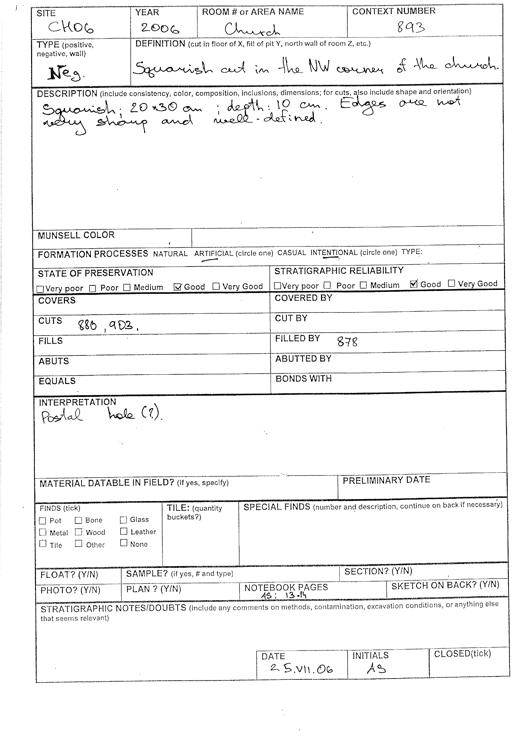 SITE YEAR ROOM # or AREA NAME CONTEXT NUMBER
CH06 2006 Church 893
TYPE (positive, negative, wall) DEFINITION (cut in floor of X, fill of pit Y, north wall of room Z, etc.)
Neg. Squarish cut in the NW corner of the church.
DESCRIPTION (include consistency, color, composition, inclusions, dimensions; for cuts, also include shape and orientation)
Squarish; 20x30 cm ; depth: 10 cm. Edges are not
very sharp and well-defined.
MUNSELL COLOR
FORMATION PROCESSES NATURAL ARTIFICIAL (circle one) CASUAL INTENTIONAL (circle one) TYPE:
STATE OF PRESERVATION STRATIGRAPHIC RELIABILITY
☐Very poor ☐ Poor ☐ Medium ☑ Good ☐ Very Good ☐Very poor ☐ Poor ☐ Medium ☑ Good ☐ Very Good
COVERS COVERED BY
CUTS 880, 903, CUT BY
FILLS FILLED BY 878
ABUTS ABUTTED BY
EQUALS BONDS WITH
INTERPRETATION
Postal hole (?).
MATERIAL DATABLE IN FIELD? (if yes, specify) PRELIMINARY DATE
FINDS (tick) TILE: (quantity buckets?) SPECIAL FINDS (number and description, continue on back if necessary)
☐ Pot ☐ Bone ☐ Glass
☐ Metal ☐ Wood ☐ Leather
☐ Tile ☐ Other ☐ None
FLOAT? (Y/N) SAMPLE? (if yes, # and type) SECTION? (Y/N)
PHOTO? (Y/N) PLAN ? (Y/N) NOTEBOOK PAGES SKETCH ON BACK? (Y/N)
AS: 13-14
STRATIGRAPHIC NOTES/DOUBTS (include any comments on methods, contamination, excavation conditions, or anything else
that seems relevant)
DATE INITIALS CLOSED(tick)
25.VII.06 AS